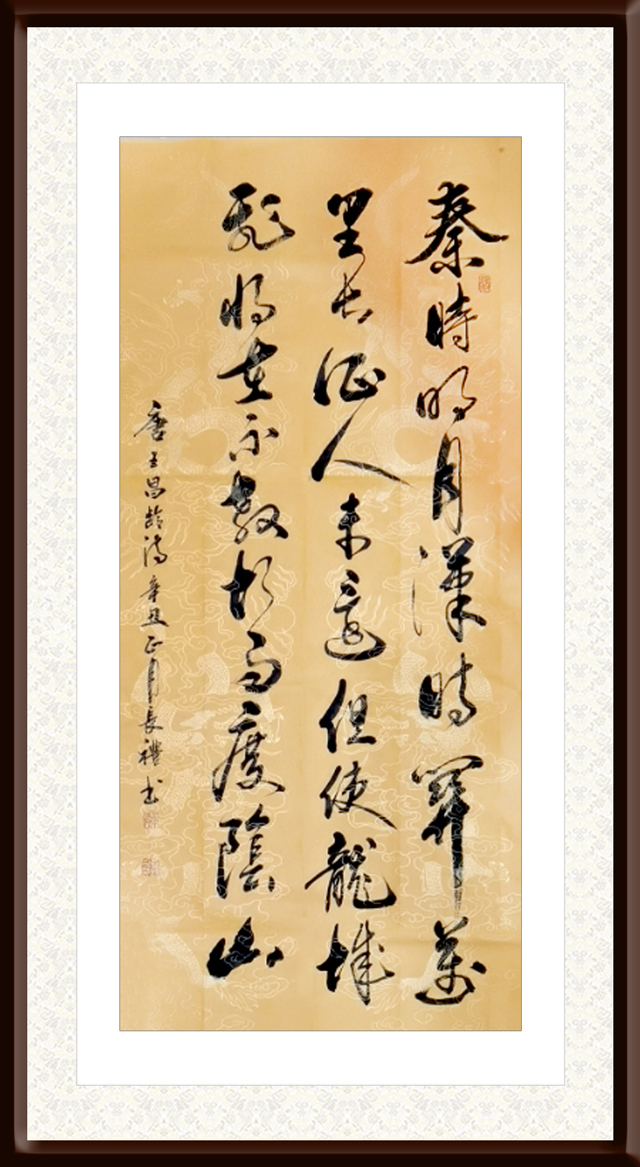 秦時明月漢時關萬
里長征人未還但使龍城
飛將在不教胡馬度陰山
唐王昌齡詩辛丑正月長禮书